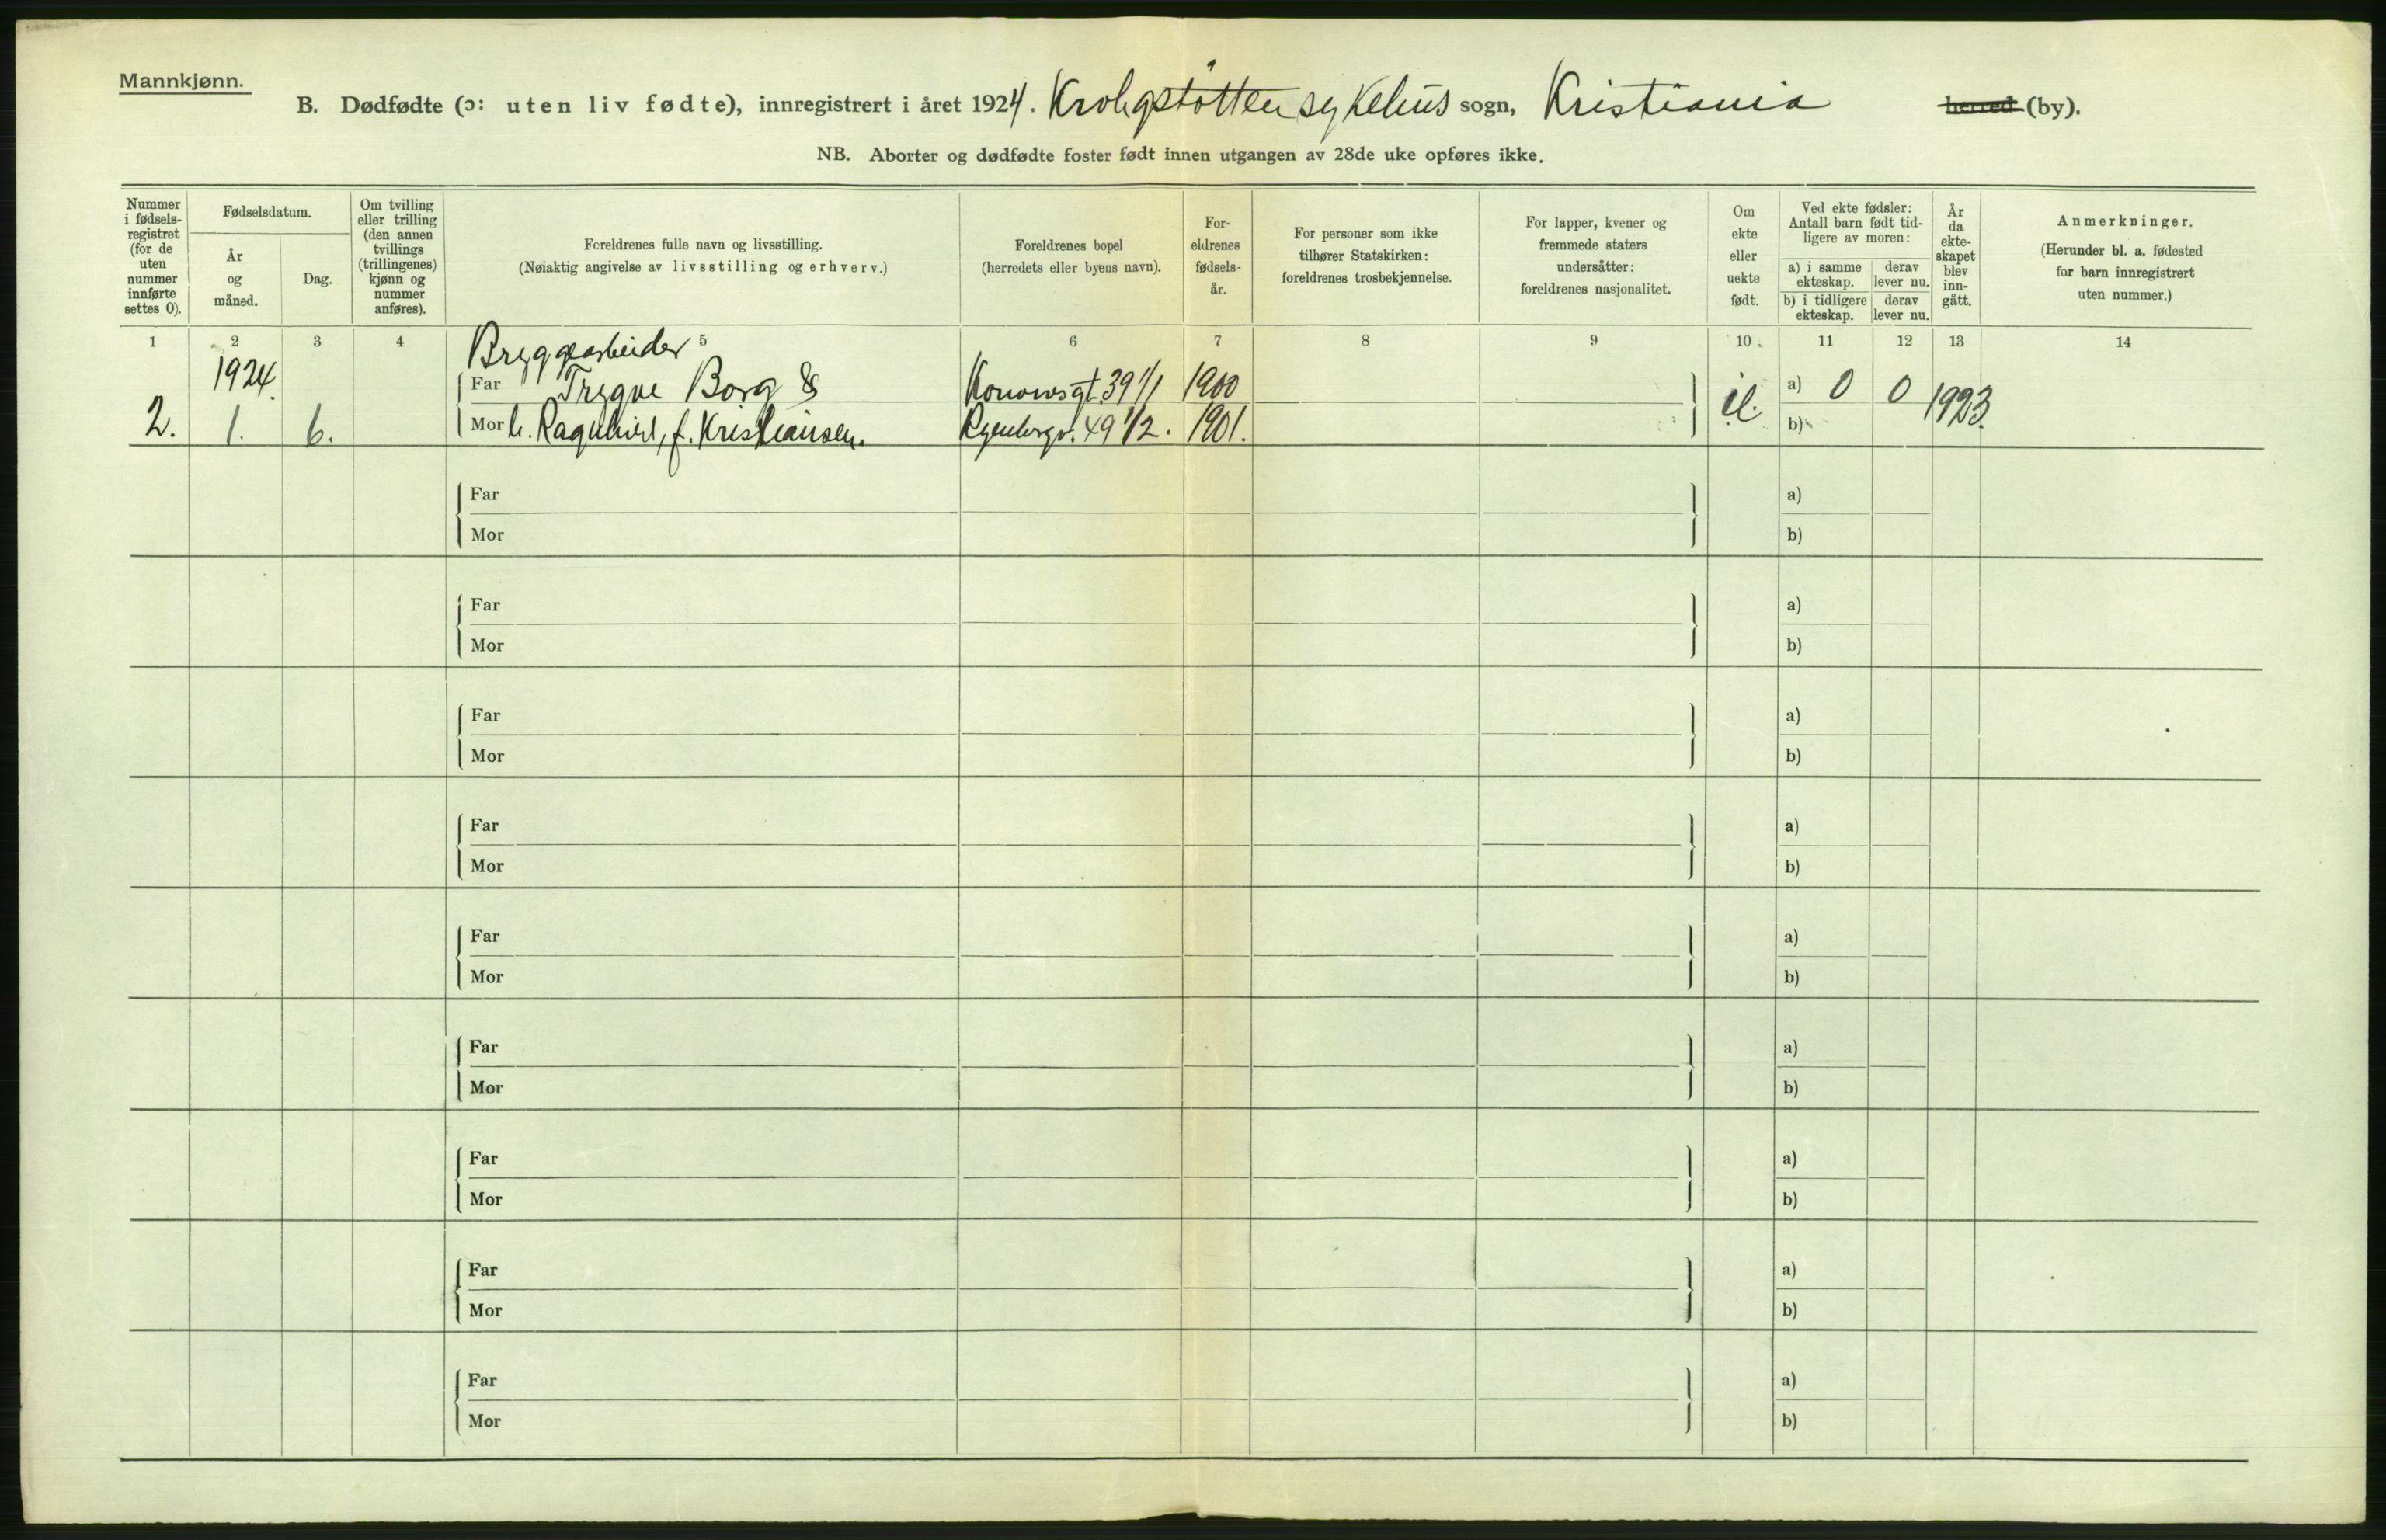 Mannkjønn.
B. Dødfødte (ɔ: uten liv fødte), innregistrert i året 1924. Krohgstøtten sykehus sogn, Kristiania herred (by).
NB. Aborter og dødfødte foster født innen utgangen av 28de uke opføres ikke.
Nummer i fødsels-registret (for de uten nummer innførte settes 0).
Fødselsdatum.
År og måned.
Dag.
Om tvilling eller trilling (den annen tvillings (trillingenes) kjønn og nummer anføres).
Foreldrenes fulle navn og livsstilling.
(Nøiaktig angivelse av livsstilling og erhverv.)
Foreldrenes bopel
(herredets eller byens navn).
For-eldrenes fødsels-år.
For personer som ikke tilhører Statskirken: foreldrenes trosbekjennelse.
For lapper, kvener og fremmede staters undersåtter: foreldrenes nasjonalitet.
Om ekte eller uekte født.
Ved ekte fødsler: Antall barn født tid-ligere av moren:
a) i samme ekteskap. derav lever nu.
b) i tidligere ekteskap. derav lever nu.
År da ekte-skapet blev inn-gått.
Anmerkninger.
(Herunder bl. a. fødested for barn innregistrert uten nummer.)
1 2 3 4 5 6 7 8 9 10 11 12 13 14
Bryggearbeider
1924. Far Trygve Borg & Konowsgt. 39 1/1 1900 a) 0 0
2. 1. 6. Mor h. Ragnhild, f. Kristiansen. Ryenbergv. 49 1/2. 1901. b) 1923.
Far a)
Mor b)
Far a)
Mor b)
Far a)
Mor b)
Far a)
Mor b)
Far a)
Mor b)
Far a)
Mor b)
Far a)
Mor b)
Far a)
Mor b)
Far a)
Mor b)